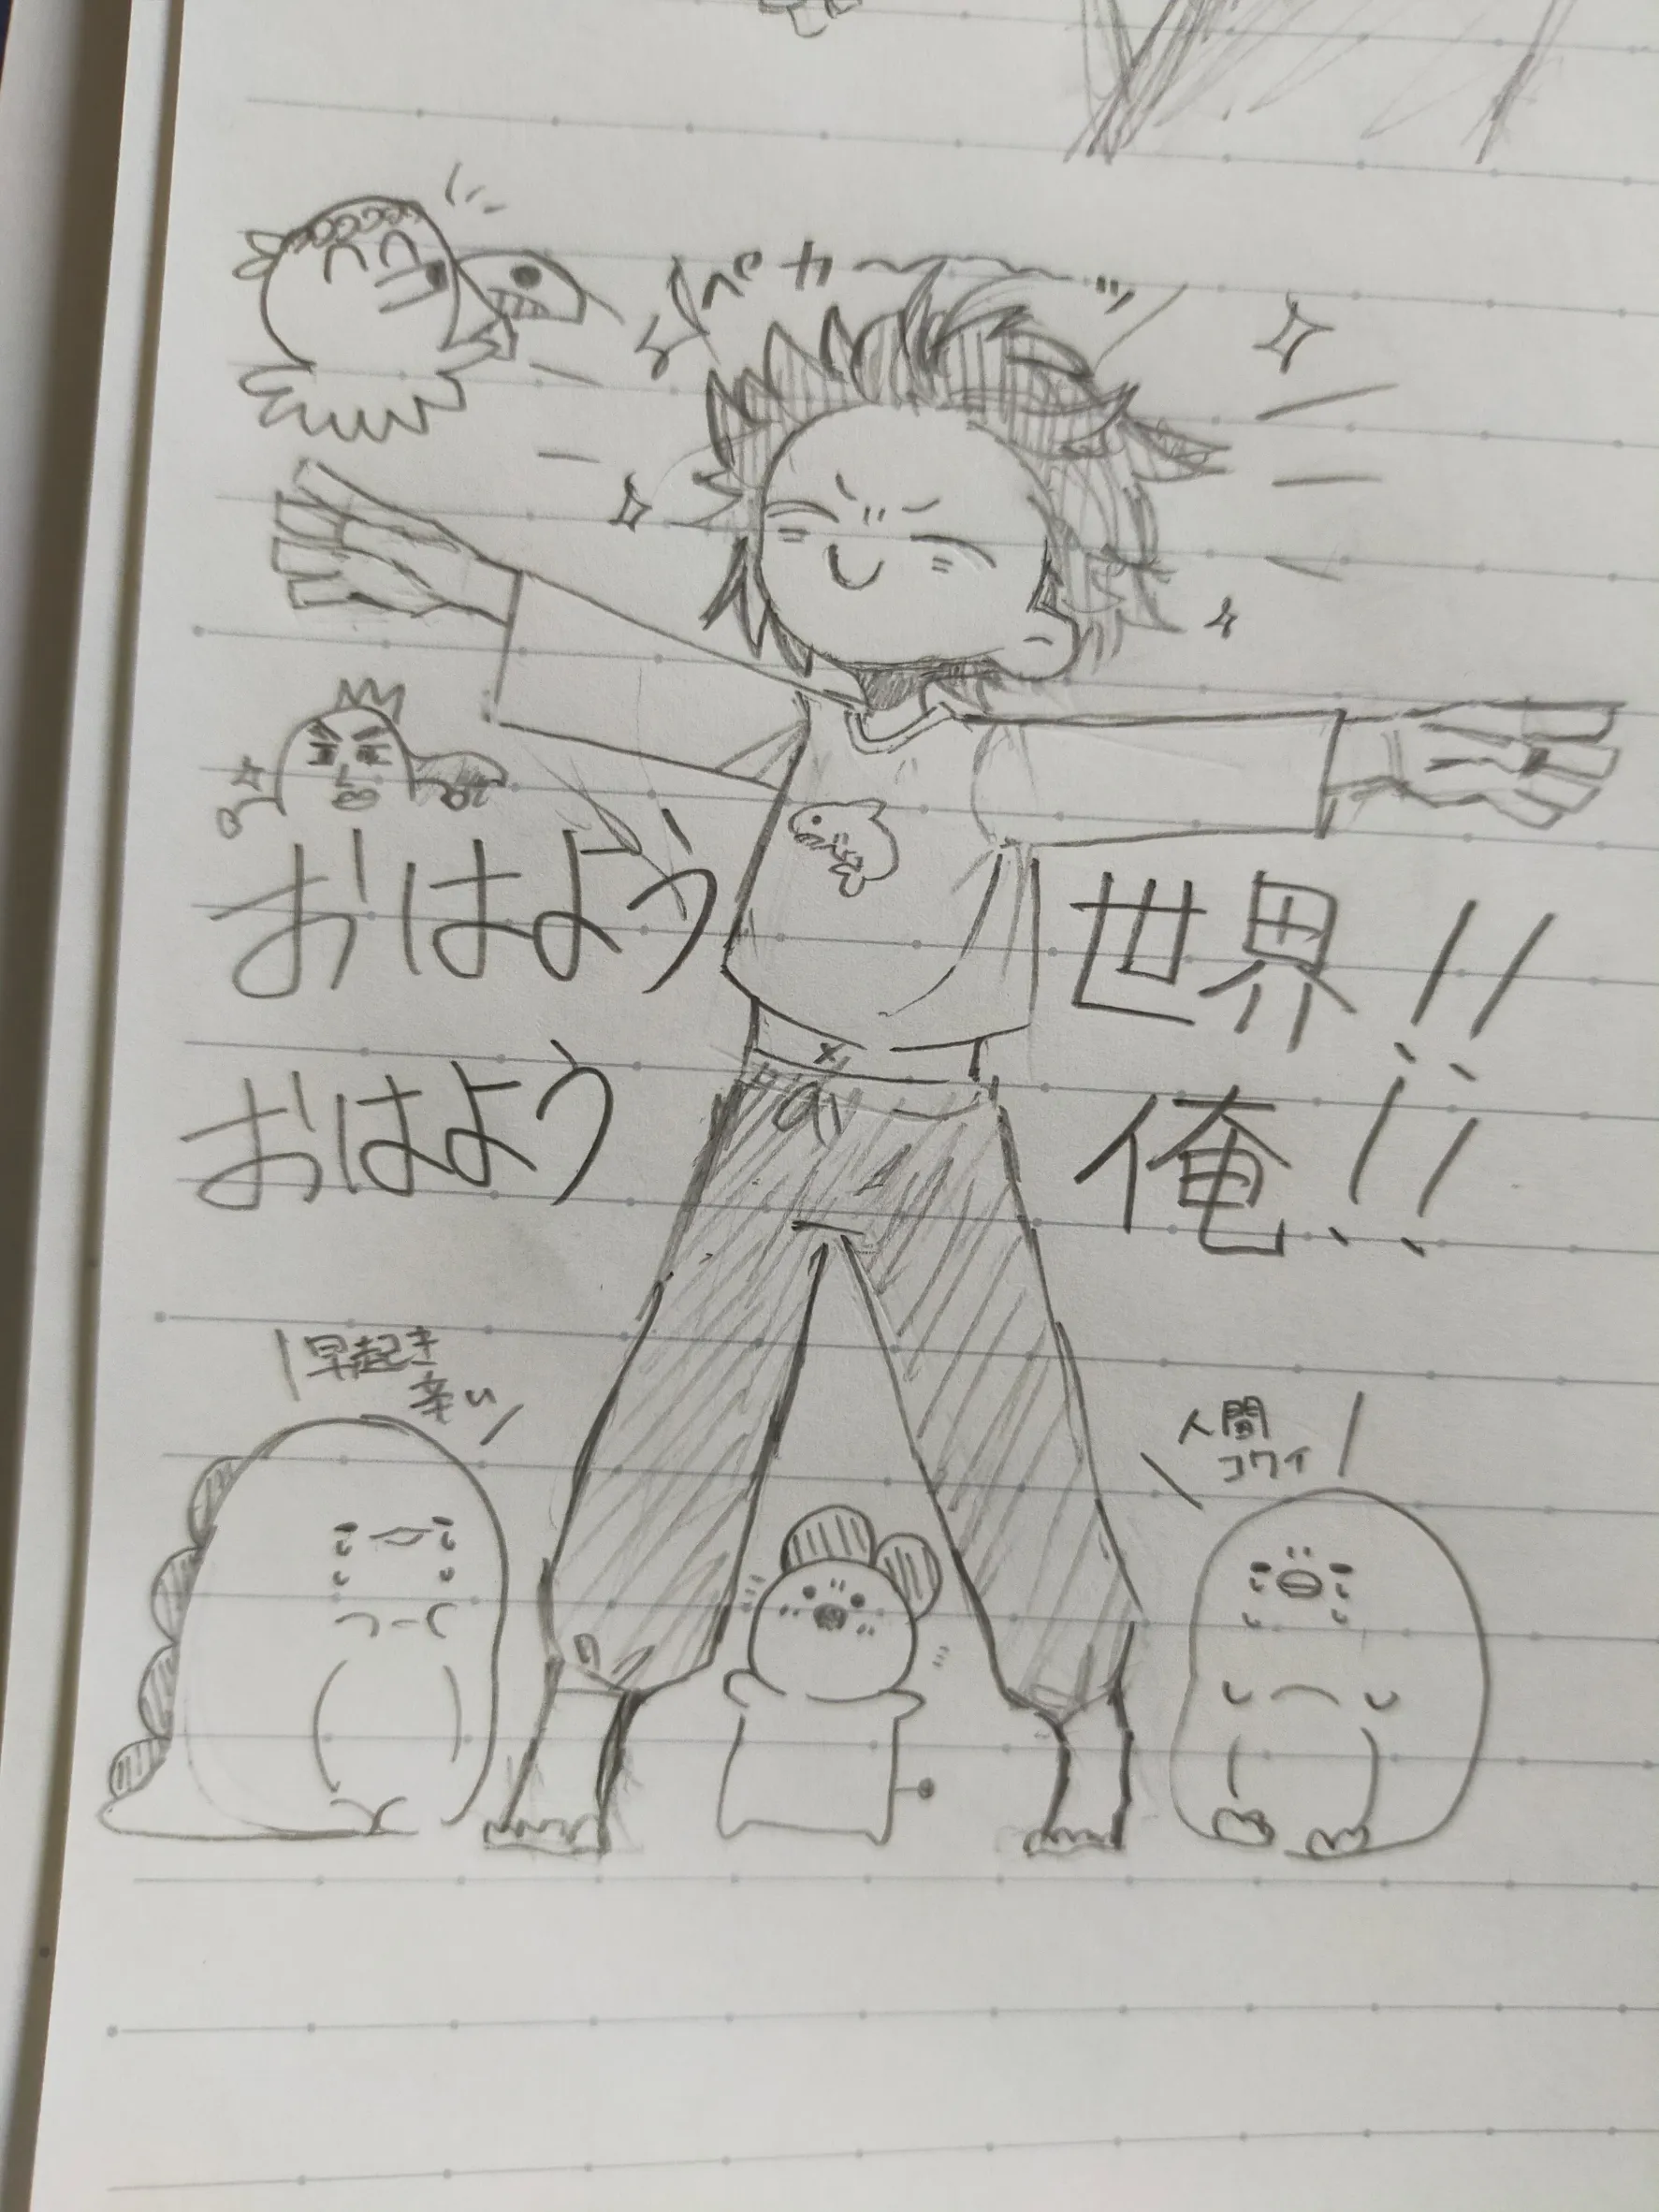 バサーッ
おはよう 世界!!
おはよう 俺!!
早起き
辛い
人間
コワイ